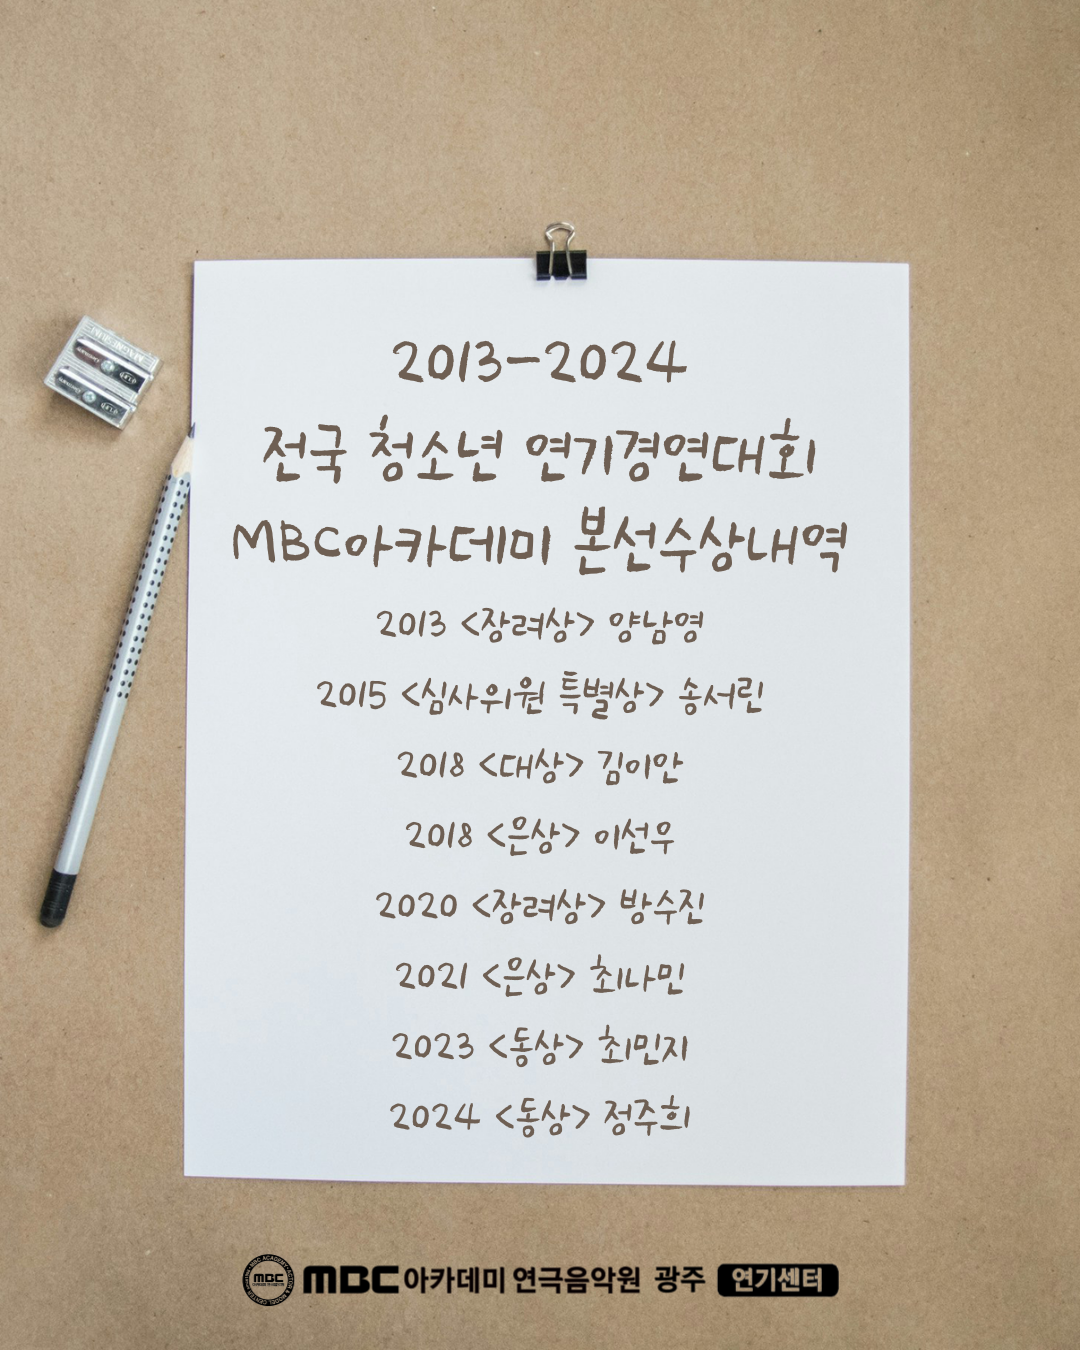 2013-2024
전국 청소년 연기경연대회
MBC아카데미 본선수상내역
2013 <장려상> 양남영
2015 <심사위원 특별상> 송서린
2018 <대상> 김이안
2018 <은상> 이선우
2020 <장려상> 방수진
2021 <은상> 최나민
2023 <동상> 최민지
2024 <동상> 정주희
MBC
MBC아카데미 연극음악원 광주 연기센터